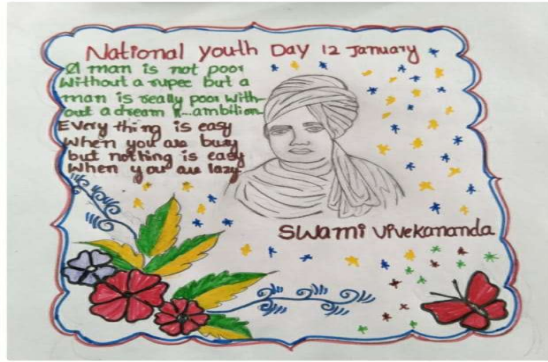 National youth Day 12 January
A man is not poor
Without a rupee but a
man is really poor with-
out a dream &...ambition
Every thing is easy
When you are busy
but nothing is easy
When you are lazy.
Swami Vivekananda